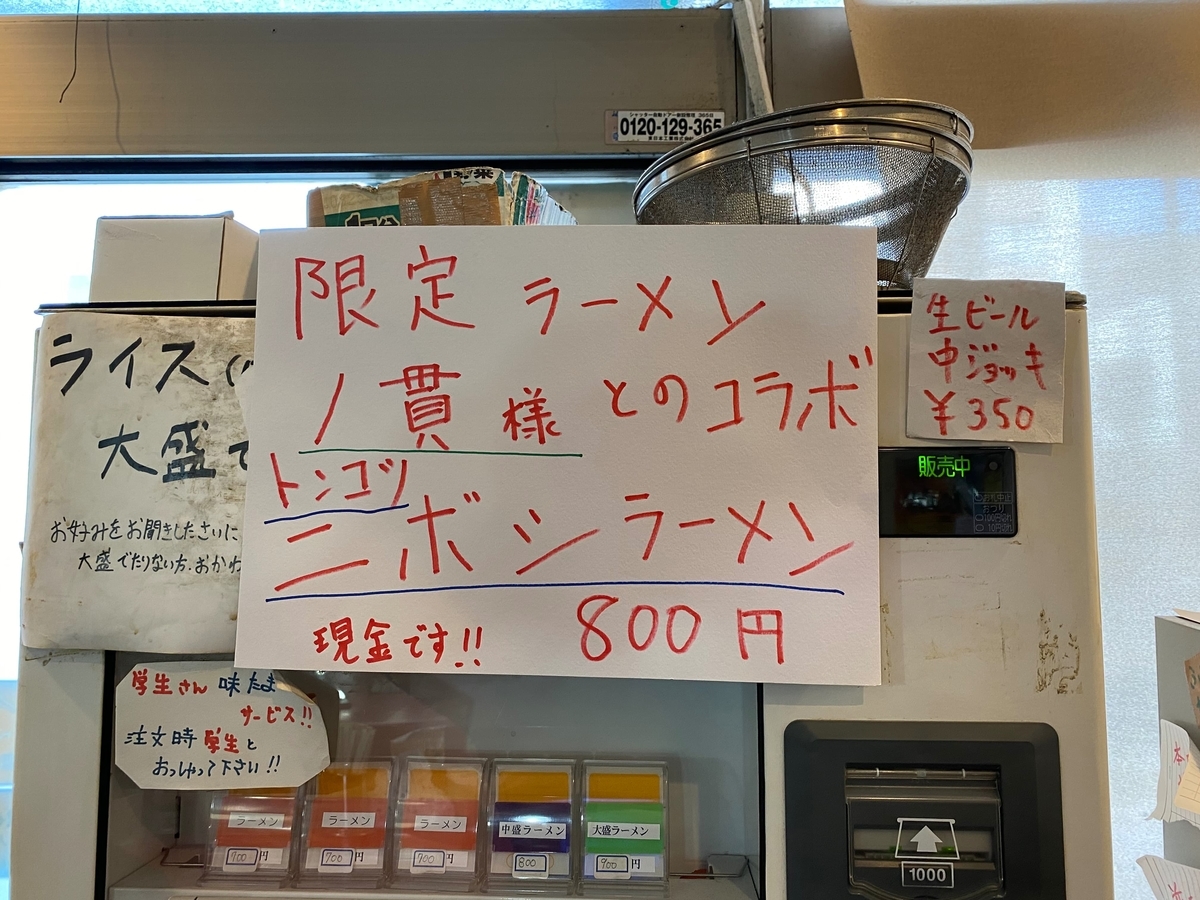 0120-129-365
限定 ラーメン
ノ貫様 とのコラボ
トンコツ
ニボシラーメン
現金です!! 800円
生ビール
中ジョッキ
¥350
販売中
おつり
ライス
大盛で
お好みをお聞きしたさいに
大盛でたりない方、おかわ
学生さん 味たま
サービス!!
注文時 学生と
おっしゃって下さい!!
ラーメン
700円
ラーメン
700円
ラーメン
700円
中盛ラーメン
800
大盛ラーメン
900円
1000